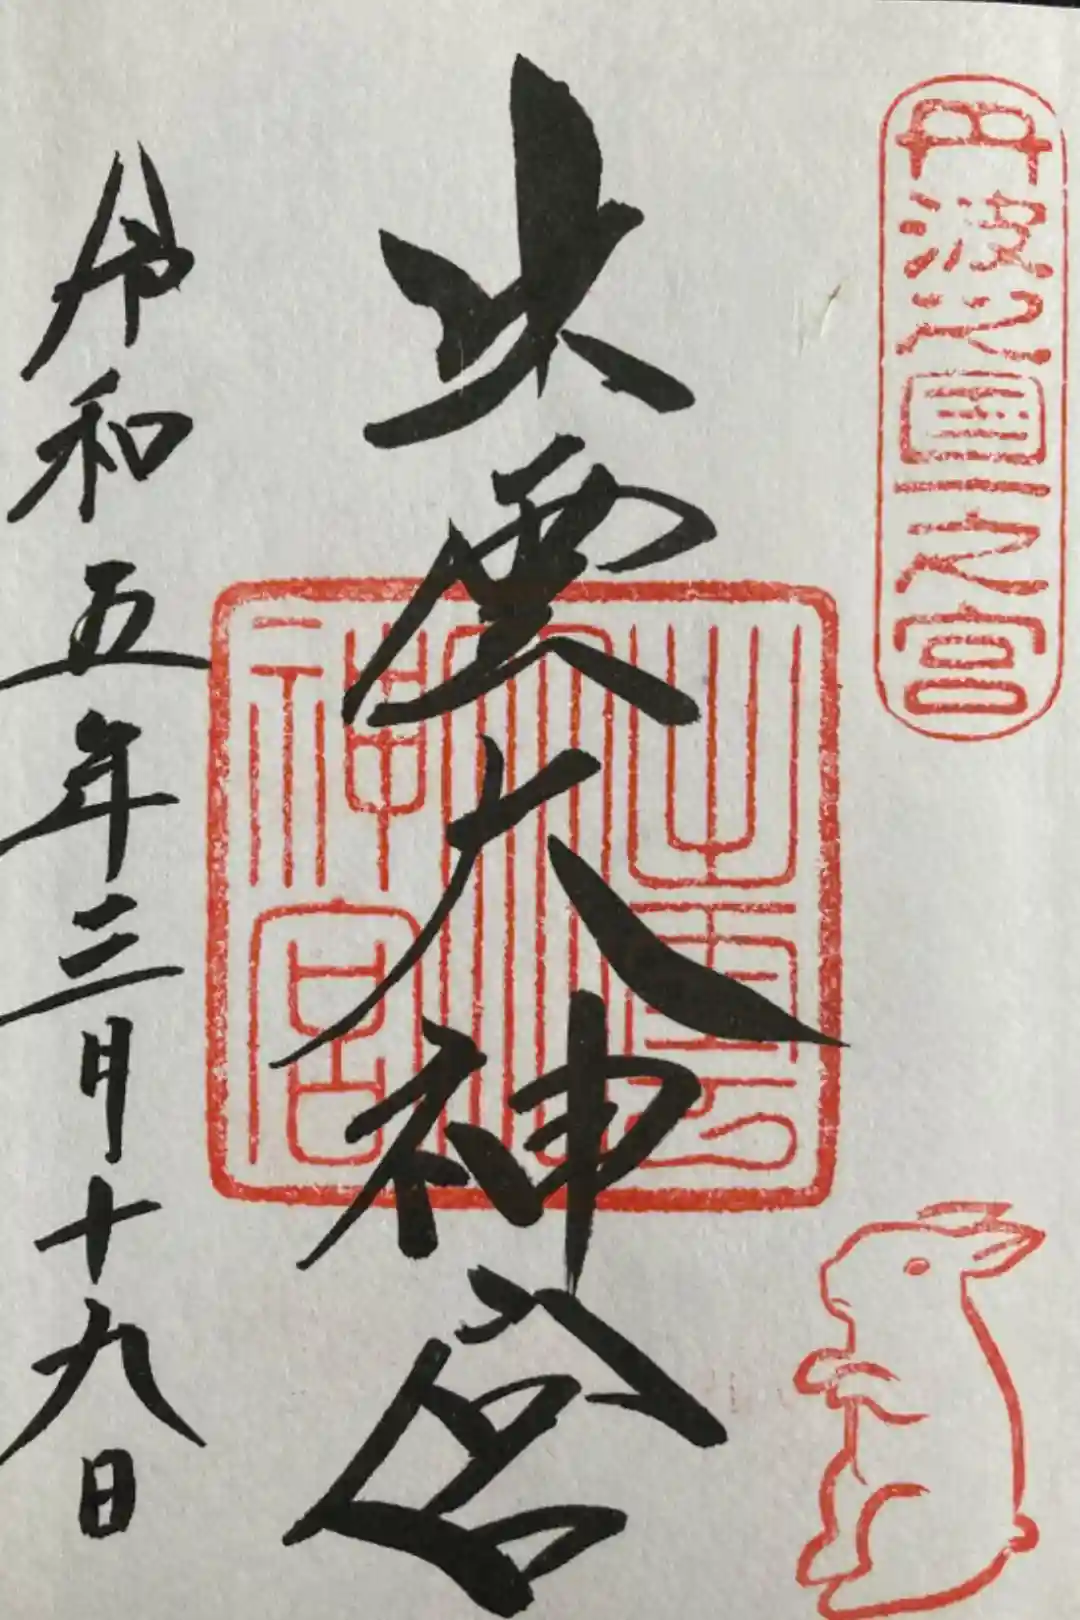 丹波之國一之宮
出雲大神宮
出雲大神宮
令和五年三月十九日